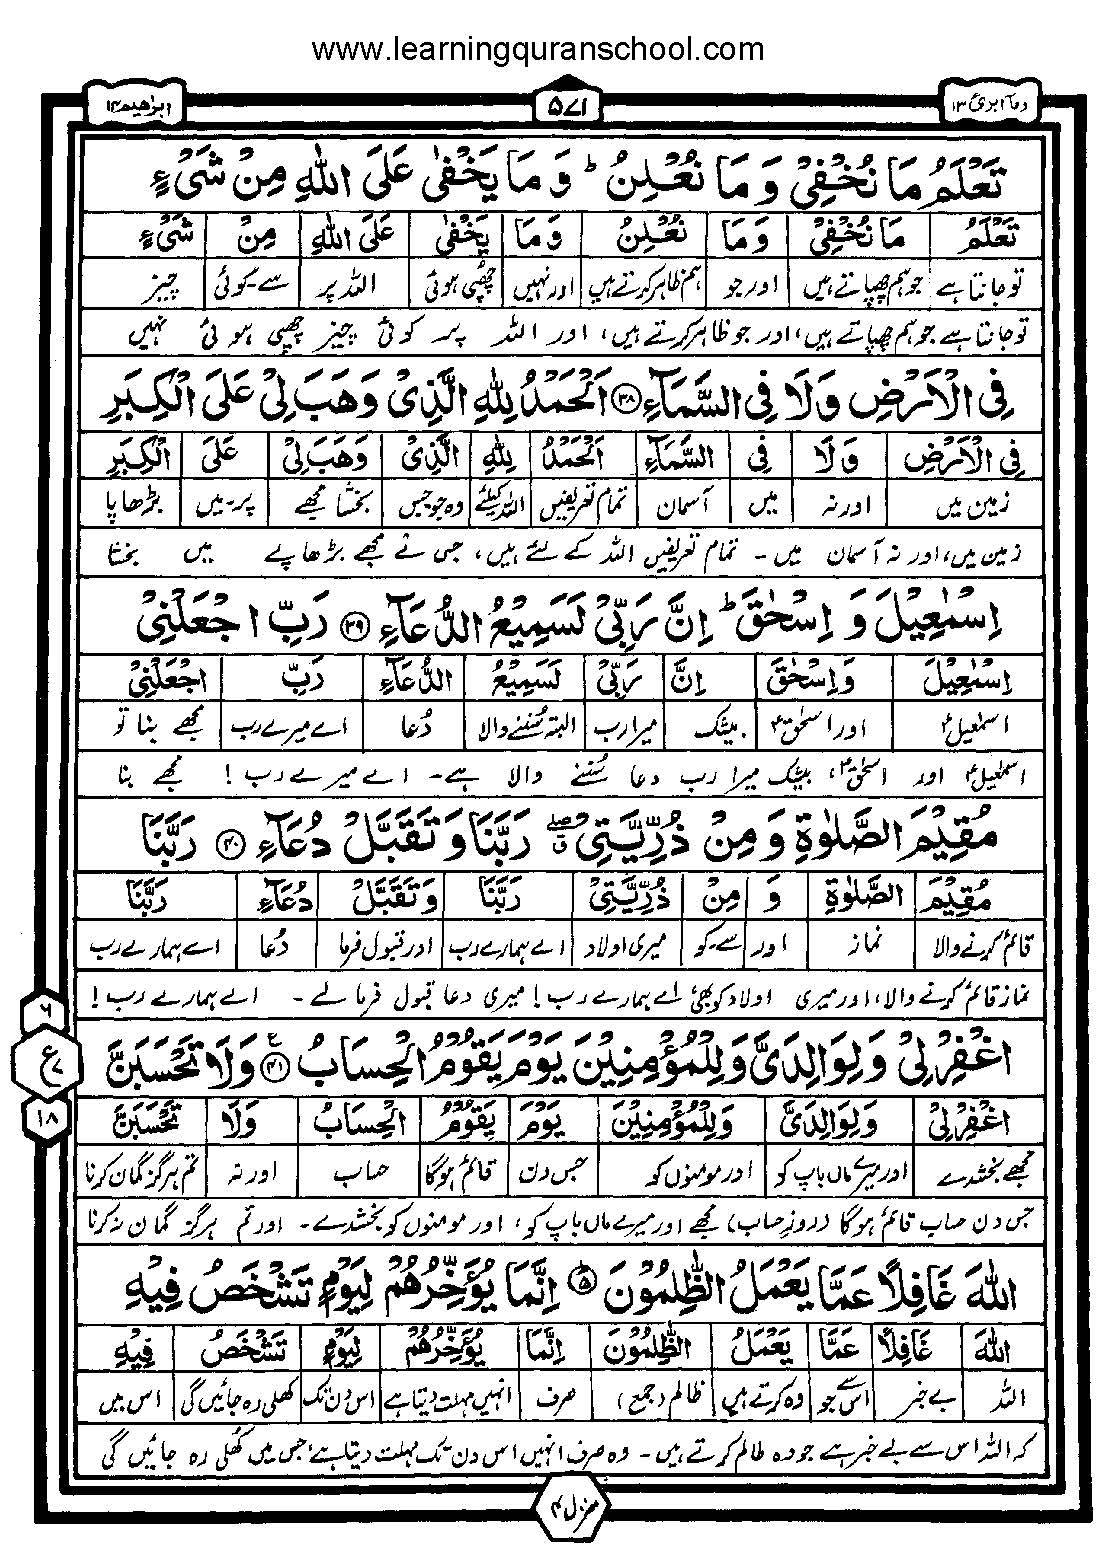 www.learningquranschool.com
وما ابرئ ۱۳ ۵۷۱ ابراهيم ۱۴
تَعْلَمُ مَا نُخْفِيْ وَ مَا نُعْلِنُ ؕ وَ مَا يَخْفٰى عَلَى اللّٰهِ مِنْ شَيْءٍ
تَعْلَمُ مَا نُخْفِيْ وَ مَا نُعْلِنُ وَ مَا يَخْفٰى عَلَى اللّٰهِ مِنْ شَيْءٍ
تو جانتا ہے جو ہم چھپاتے ہیں اور جو ہم ظاہر کرتے ہیں اور نہیں چھپی ہوئی اللہ پر سے۔کوئی چیز
تو جانتا ہے جو ہم چھپاتے ہیں، اور جو ظاہر کرتے ہیں، اور اللہ پر کوئی چیز چھپی ہوئی نہیں
فِي الْاَرْضِ وَلَا فِي السَّمَآءِ ۳۸ اَلْحَمْدُ لِلّٰهِ الَّذِيْ وَهَبَ لِيْ عَلَى الْكِبَرِ
فِي الْاَرْضِ وَلَا فِي السَّمَآءِ اَلْحَمْدُ لِلّٰهِ الَّذِيْ وَهَبَ لِيْ عَلَى الْكِبَرِ
زمین میں اور نہ میں آسمان تمام تعریفیں اللہ کیلئے وہ جو جس بخشا مجھے پر۔میں بڑھاپا
زمین میں، اور نہ آسمان میں ۔ تمام تعریفیں اللہ کے لئے ہیں، جس نے مجھے بڑھاپے میں بخشا
اِسْمٰعِيْلَ وَ اِسْحٰقَ ؕ اِنَّ رَبِّيْ لَسَمِيْعُ الدُّعَآءِ ۳۹ رَبِّ اجْعَلْنِيْ
اِسْمٰعِيْلَ وَ اِسْحٰقَ اِنَّ رَبِّيْ لَسَمِيْعُ الدُّعَآءِ رَبِّ اجْعَلْنِيْ
اسمٰعیلؑ اور اسحٰقؑ بیشک میرا رب البتہ سُننے والا دُعا اے میرے رب مجھے بنا تو
اسمٰعیلؑ اور اسحٰقؑ، بیشک میرا رب دعا سُننے والا ہے۔ اے میرے رب ! مجھے بنا
مُقِيْمَ الصَّلٰوةِ وَ مِنْ ذُرِّيَّتِيْ ۖ رَبَّنَا وَ تَقَبَّلْ دُعَآءِ ۴۰ رَبَّنَا
مُقِيْمَ الصَّلٰوةِ وَ مِنْ ذُرِّيَّتِيْ رَبَّنَا وَ تَقَبَّلْ دُعَآءِ رَبَّنَا
قائم کرنے والا نماز اور سے۔کو میری اولاد اے ہمارے رب اور قبول فرما دُعا اے ہمارے رب
نماز قائم کرنے والا، اور میری اولاد کو بھی اے ہمارے رب! میری دعا قبول فرما لے ۔ اے ہمارے رب !
اغْفِرْ لِيْ وَ لِوَالِدَيَّ وَ لِلْمُؤْمِنِيْنَ يَوْمَ يَقُوْمُ الْحِسَابُ ۴۱ ع وَلَا تَحْسَبَنَّ
۶
ع ۷
۱۸
اغْفِرْ لِيْ وَ لِوَالِدَيَّ وَ لِلْمُؤْمِنِيْنَ يَوْمَ يَقُوْمُ الْحِسَابُ وَلَا تَحْسَبَنَّ
مجھے بخشدے اور میرے ماں باپ کو اور مومنوں کو جس دن قائم ہوگا حساب اور نہ تم ہرگز گمان کرنا
جس دن حساب قائم ہوگا (روزِ حساب) مجھے اور میرے ماں باپ کو، اور مومنوں کو بخشدے۔ اور تم ہرگز گمان نہ کرنا
اللّٰهَ غَافِلًا عَمَّا يَعْمَلُ الظّٰلِمُوْنَ ۵ؕ اِنَّمَا يُؤَخِّرُهُمْ لِيَوْمٍ تَشْخَصُ فِيْهِ
اللّٰهَ غَافِلًا عَمَّا يَعْمَلُ الظّٰلِمُوْنَ اِنَّمَا يُؤَخِّرُهُمْ لِيَوْمٍ تَشْخَصُ فِيْهِ
اللہ بے خبر اس سے جو وہ کرتے ہیں ظالم (جمع) صرف انہیں مہلت دیتا ہے اس دن تک کھلی رہ جائیں گی اس میں
کہ اللہ اس سے بے خبر ہے جو وہ ظالم کرتے ہیں ۔ وہ صرف انہیں اس دن تک مہلت دیتا ہے جس میں کھلی رہ جائیں گی
منزل ۳